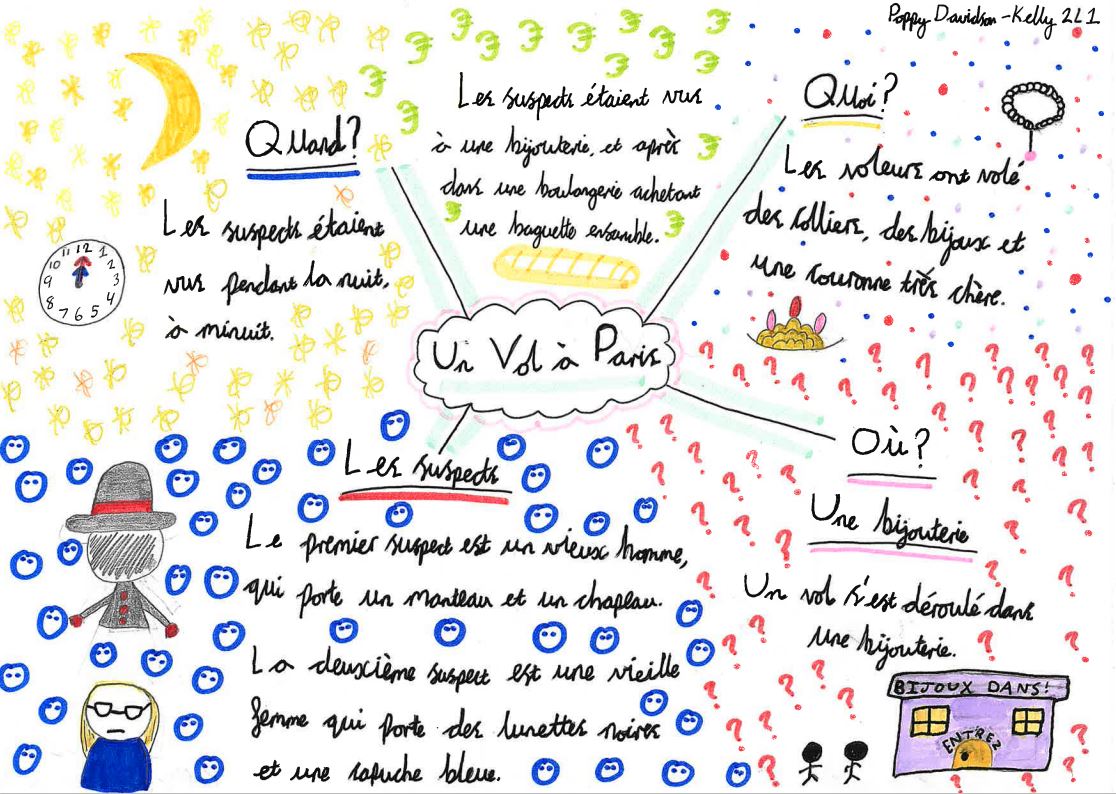 Poppy Davidson-Kelly 2L1
Quand?
Les suspects étaient
vus pendant la nuit,
à minuit.
12
1
2
3
4
5
6
7
8
9
10
11
Les suspects étaient vus
à une bijouterie, et après
dans une boulangerie achetant
une baguette ensemble.
Quoi?
Les voleurs ont volé
des colliers, des bijoux et
une couronne très chère.
Un Vol à Paris
Les suspects
Le premier suspect est un vieux homme,
qui porte un manteau et un chapeau.
La deuxième suspect est une vieille
femme qui porte des lunettes noires
et une capuche bleue.
Où?
Une bijouterie
Un vol s'est déroulé dans
une bijouterie.
BIJOUX DANS!
ENTREZ